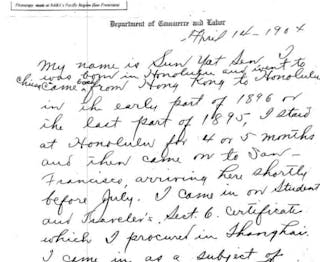 Photocopy made at NARA's Pacific Region (San Francisco)
Department of Commerce and Labor
April 14 - 1904
My name is Sun Yat Sen I
was born in Honolulu and went to
China came from Hong Kong to Honolulu
in the early part of 1896 or
the last part of 1895, I staid
at Honolulu for 4 or 5 months
and then came on to San-
Francisco, arriving here shortly
before July. I came in on Student
and Traveler's, Sect 6. Certificate
which I procured in Shanghai.
I came in as a subject of